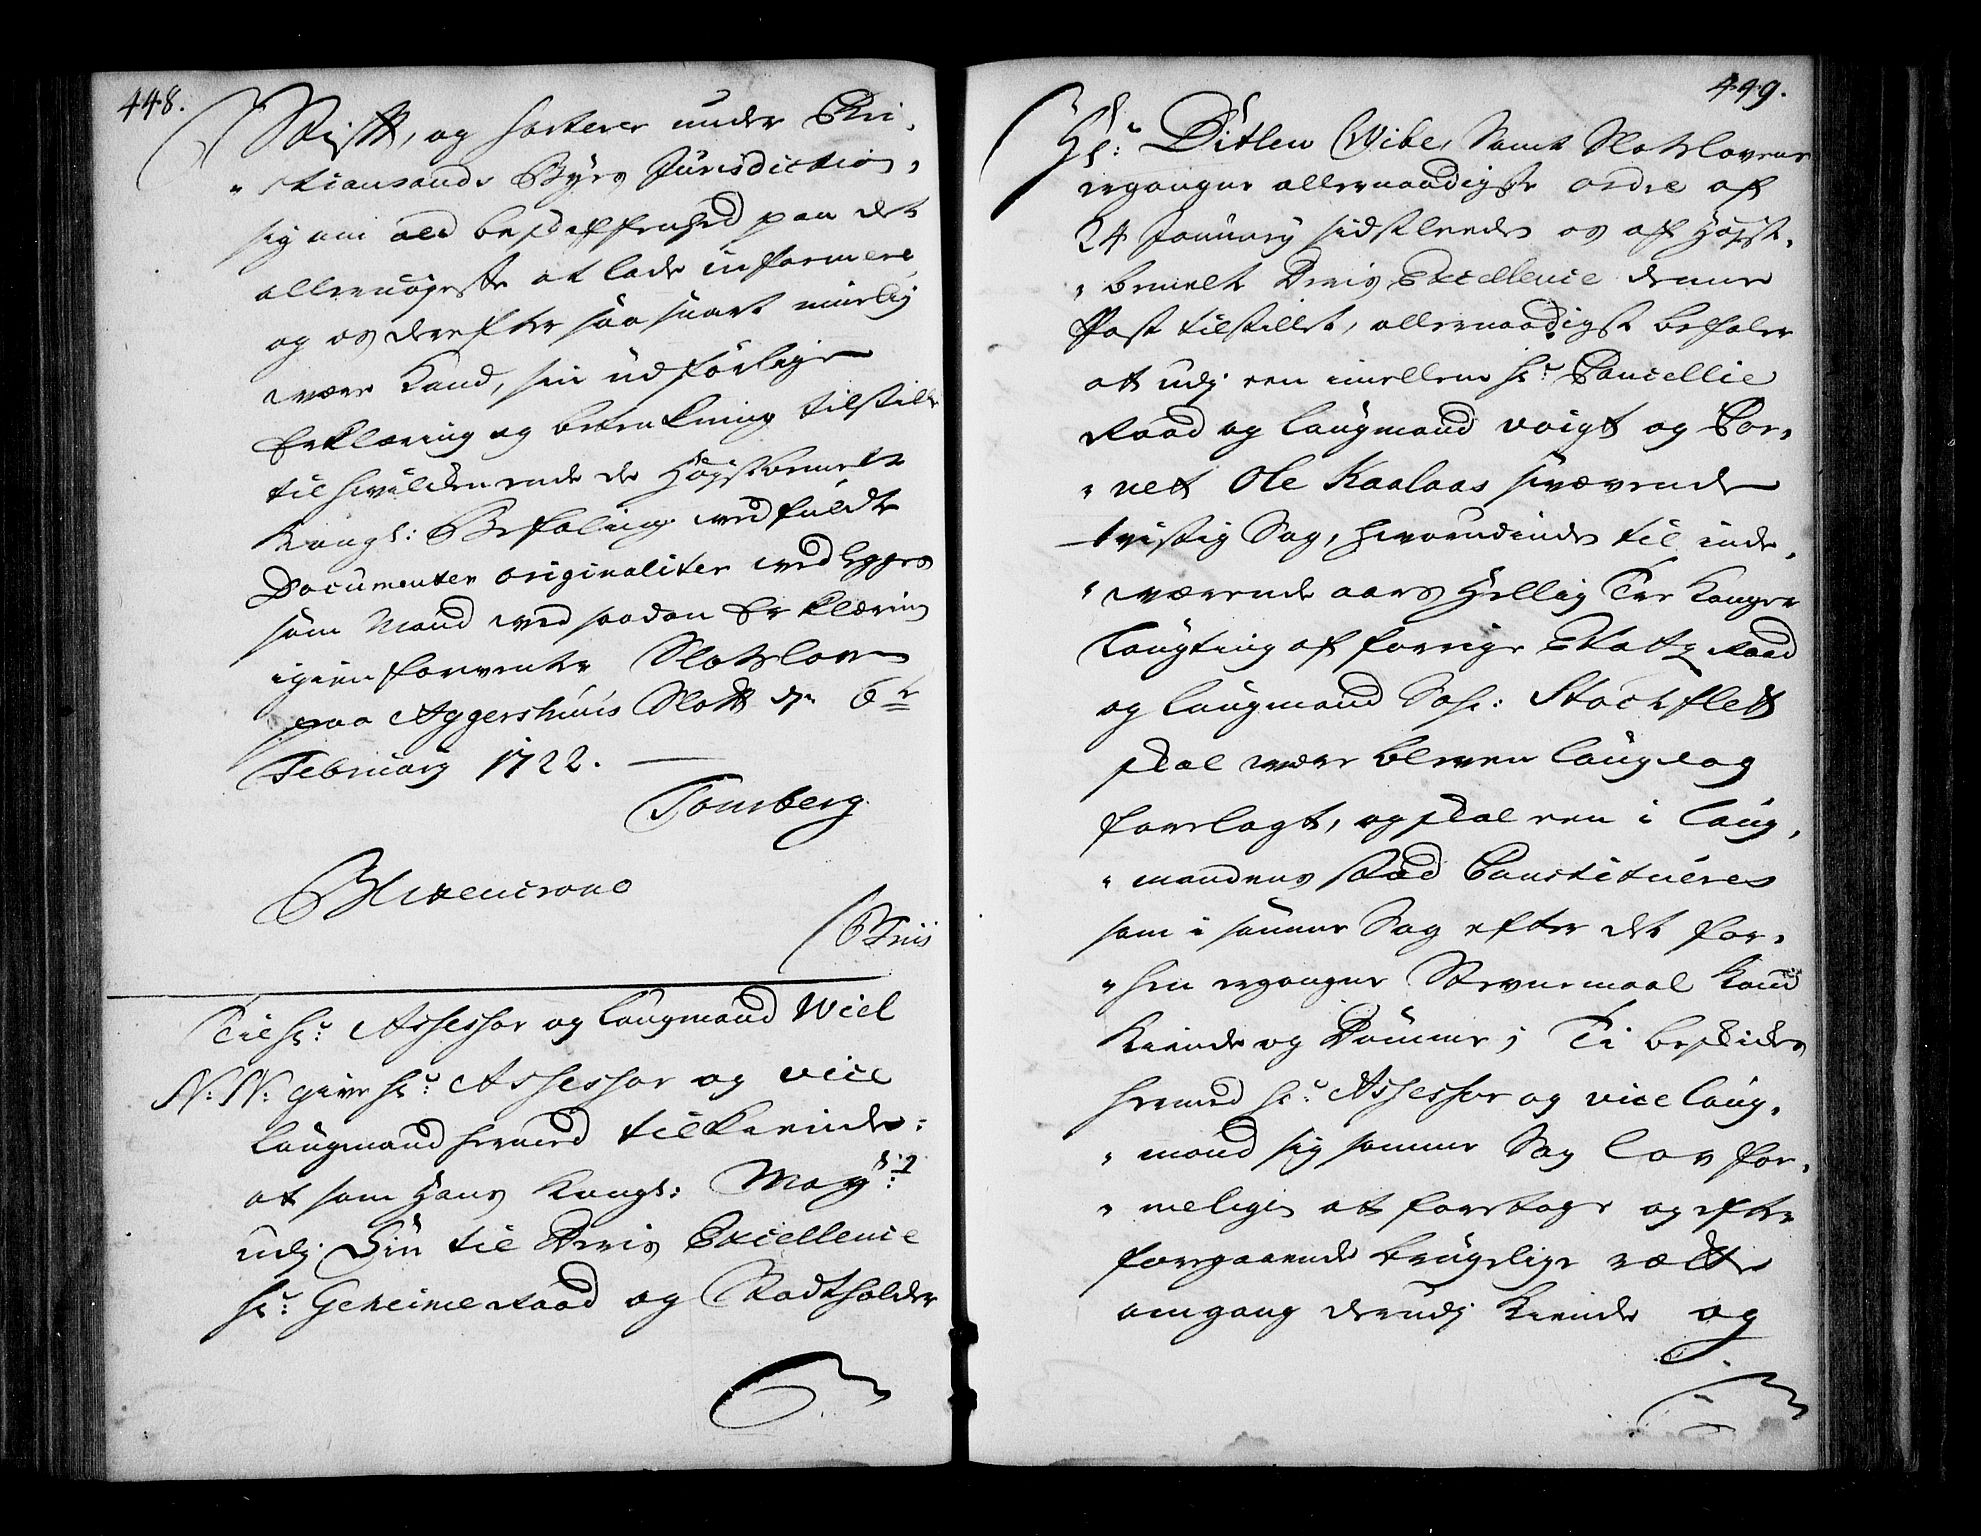 448.
Stift, og sorterer under Chri,
" stiansands Byes Jurisdiction,
sig om ald beskaffenhed paa det
allernøyeste at lade informere
og os derefter saa snart muelig
være kand, sin udførlige
Erklæring og betænkning tilstille
til hvilken ende de Høystbemelte
Kongl: Befaling medfuldte
Documenter originaliter vedlegges
som Mand med saadan Erklæring
igien forventer Slotsloven
paa Aggershuus Slott den 6te
February 1722. —
Tonsberg
Blixencrone
Bruis
Til Hr: Assessor og Laugmand Wiel
N: N: give Hr: Assessor og vice
Laugmand hermed tilkiende:
at som Hans Kongl: Mayts:
udj Din til Deris Excellence
Hr: Geheime Raad og Stadtholder
449.
Hr: Ditlev Wibe, samt Slotslovens
ergangne allernaadigste ordre af
24 January sidstleeden os af Høyst,
" bemelte Deris Excellence denne
Post tilstillet, allernaadigst befaler
at udj een imellem Hr: Cancellie
Raad og Laugmand Voigt og Cor,
" net Ole Kaalaas svævende
tvistig Sag, hvorudinden til inde,
" værende aars Hellig Tre Konger
Laugting af forrige Etatz Raad
og Laugmand Joh: Stockflett
skal være bleven Laugdag
forelagt, og skal een i Laug,
" mandens stæd Constitueres
som i samme Sag efter det for,
" hen ergangne Stevnemaal Kand
Kiende og Dømme; Ti beskides
hermed Hr: Assessor og vice Laug,
" mand sig samme Sag Lov for,
" melige at foretage og efter
foregaaende brugelige rætter
omgang derudj Kiende og